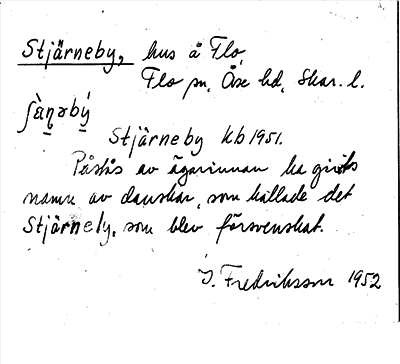 Stjärneby, hus å Flo,
Flo sn, Åse hd, Skar. l.
ʃàn̥əbý
Stjärneby kb 1951.
Påstås av ägarinnan ha givits
namn av danskar, som kallade det
Stjärnely, som blev försvenskat.
I. Fredriksson 1952